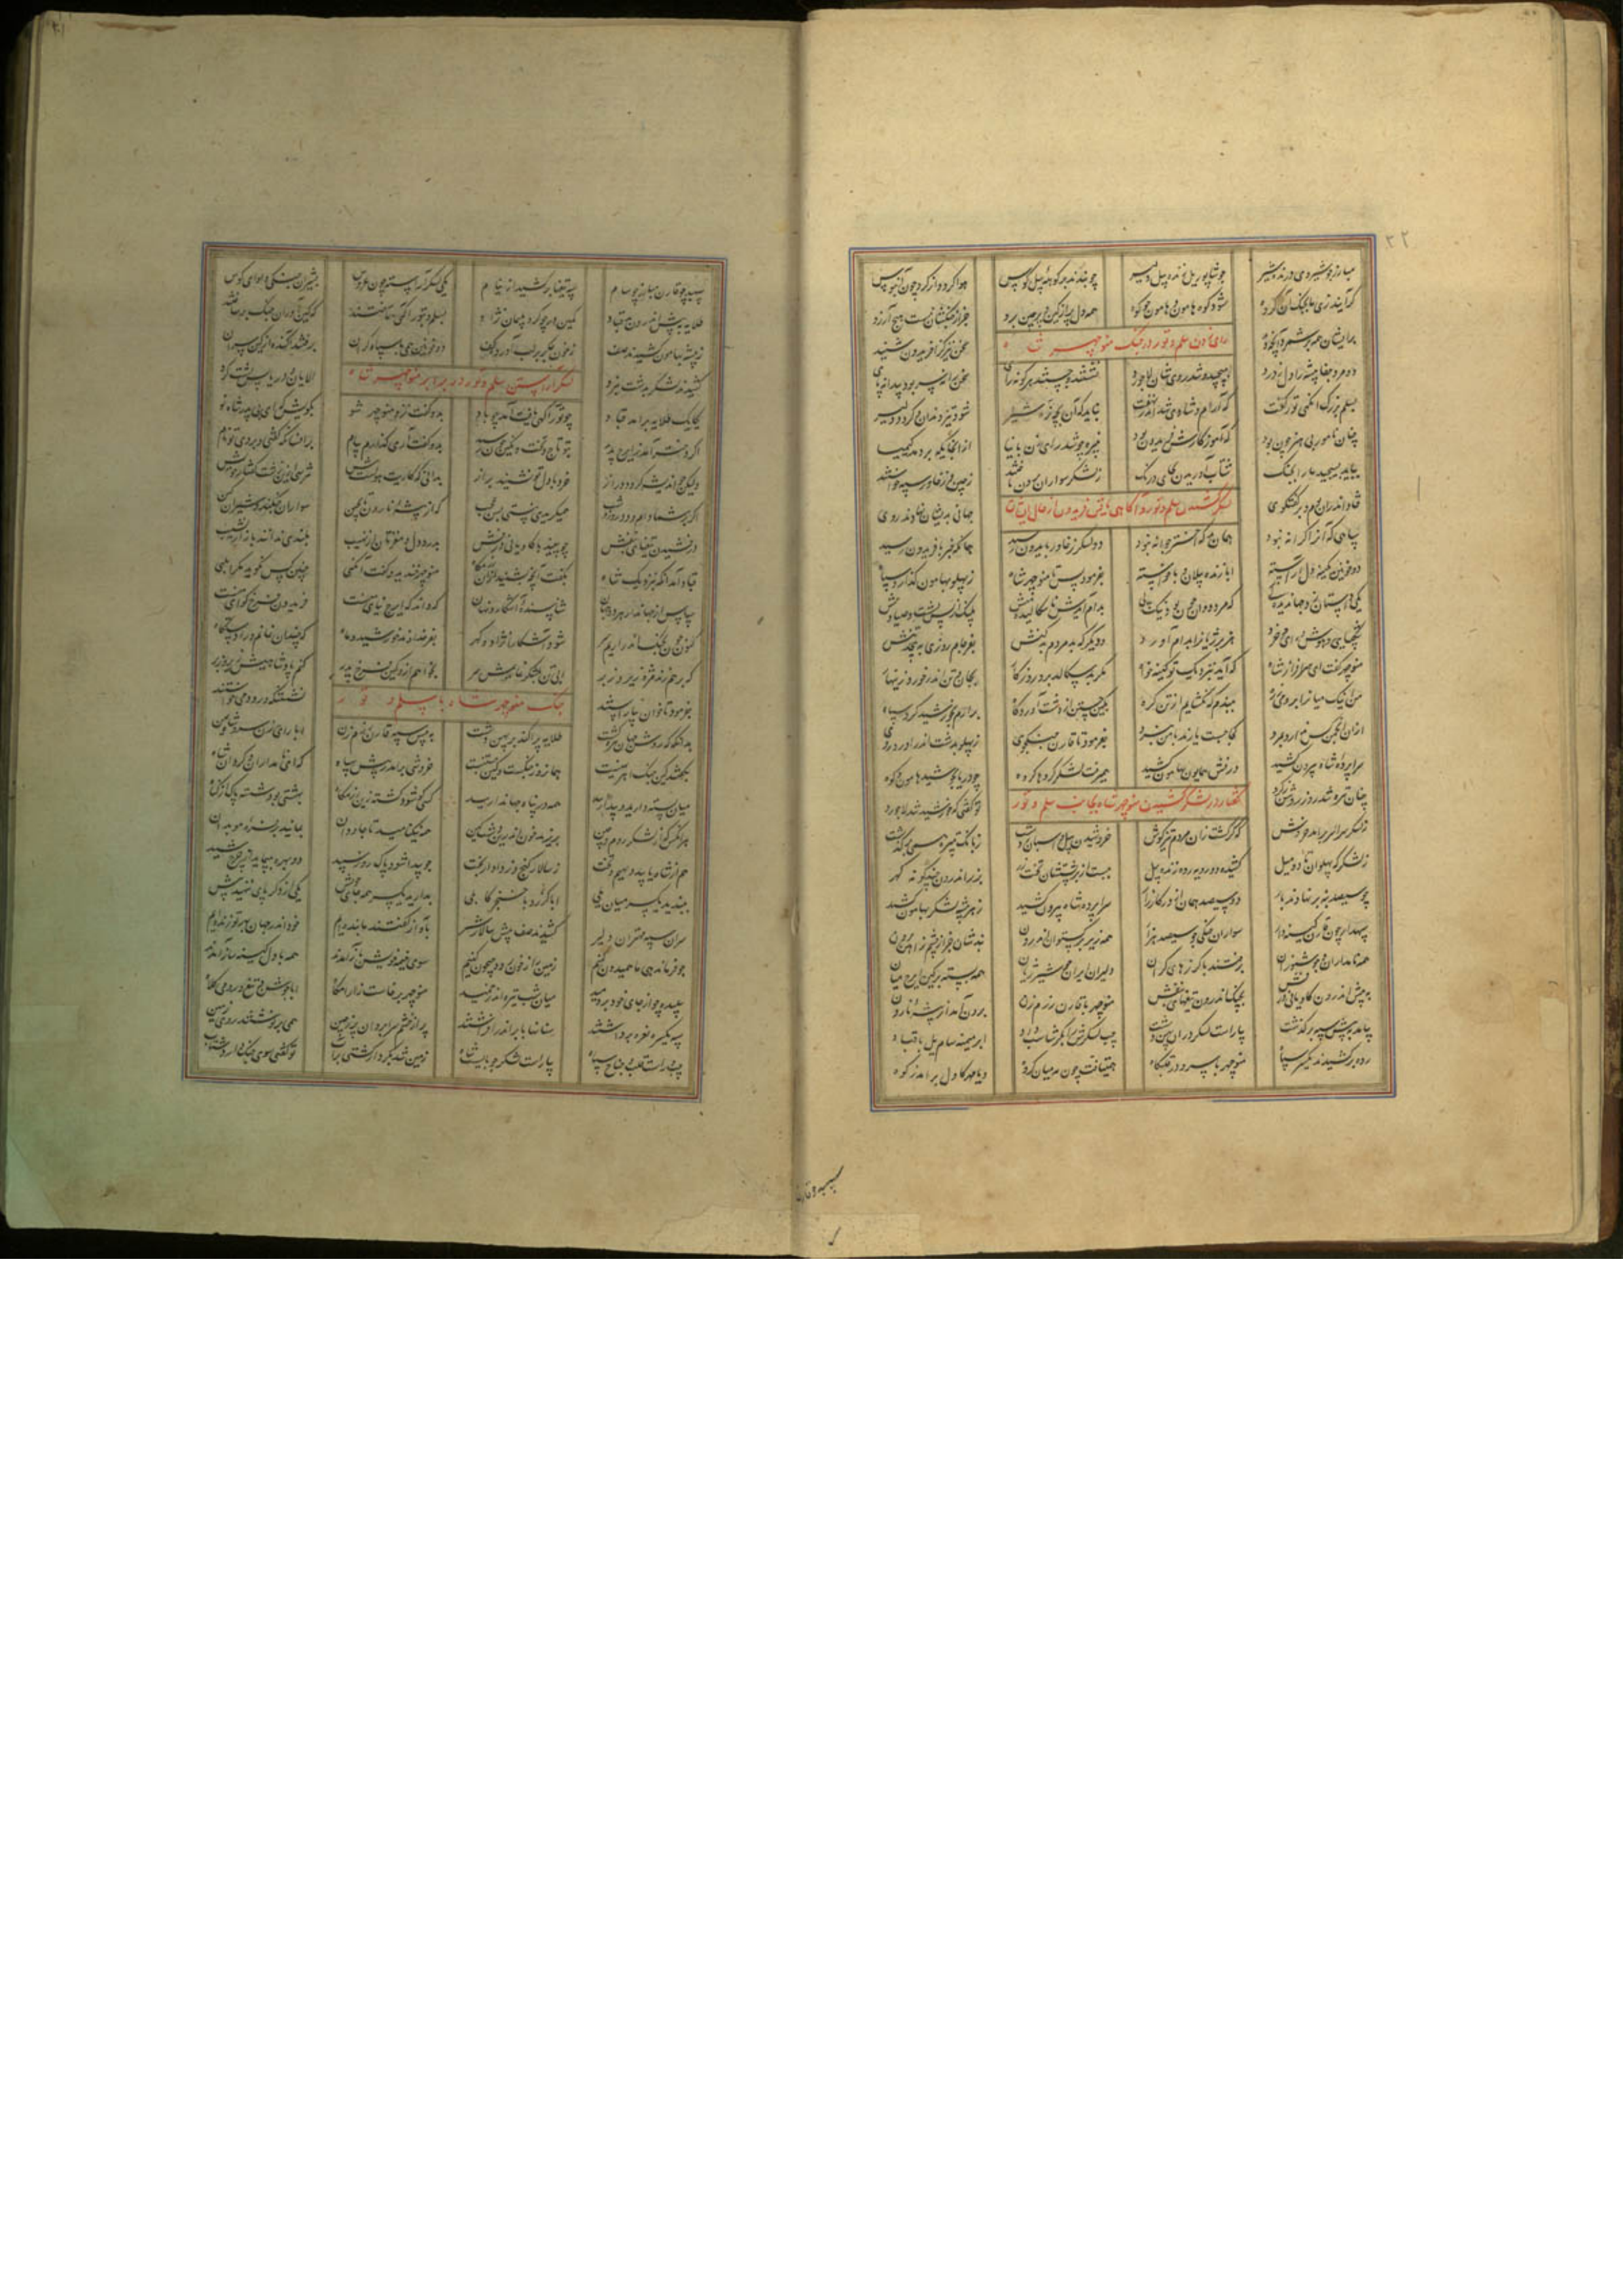 ۲۲
مبارز چو شیروی درنده شیر چو شاپور یل ژنده پیل دلیر چو بندند بر کوهه پیل کوس هوا گردد از گرد چون آبنوس
گر آیند زی ما بجنگ آن گروه شود کوه هامون و هامون چو کوه همه دل پر از کین و پرچین برو جز از جنگشان نیست هیچ آرزو
برایشان همه برشمرد آنچه دید سخن نیز کز آفریدون شنید
رای زدن سلم و تور در جنگ منوچهر شاه
دو مرد جفا پیشه را دل ز درد بپیچید و شد روی شان لاجورد نشستند و جستند هر گونه رای سخن را نه سر بود پیدا نه پای
بسلم بزرگ آنگهی تور گفت که آرام و شادی شد اندر نهفت نباید که آن بچه نره شیر شود تیز دندان و گردد دلیر
چنان نامور بی هنر چون بود که آموزگارش فریدون بود نبیره چو شد رای زن با نیا از آنجایگه بردمد کیمیا
بباید بسیجید ما را بجنگ شتاب آوریدن بجای درنگ ز لشکر سواران برون تاختند ز چین و ز خاور سپه ساختند
فتاد اندران بوم و بر گفتگوی جهانی بدیشان نهادند روی
لشکر کشیدن سلم و تور و آگاهی یافتن فریدون از حال ایشان
سپاهی که آنرا کرانه نبود همان بد که اختر جوانه نبود دو لشکر ز خاور بایران رسید همانگه خبر با فریدون رسید
دو خونین کمینه دل آراسته ابا ژنده پیلان و با خواسته بفرمود پس تا منوچهر شاه ز پهلو بهامون گذارد سپاه
یکی داستان زد جهاندیده کی که مرد جوان چون بود نیک پی بدام آیدش ناسگالیده میش پلنگ از پس پشت و صیاد پیش
شکیبایی و هوش و رای و خرد هژبر ژیان را بدام آورد و دیگر که بد مردم بدکنش بفرجام روزی به پیچد تنش
منوچهر گفت ای سرافراز شاه که آید بنزدیک تو کینه خواه مگر بد سگالد برو روزگار بجان و تن اندر خورد زینهار
من اینک میان را برومی زره ببندم که نگشایم از تن گره بکین جستن از دشت آوردگاه برآرم بخورشید گرد سپاه
ازان انجمن کس ندارم بمرد کجا جست یارند با من نبرد بفرمود تا قارن جنگجوی ز پهلو بدشت اندر آورد روی
سراپرده شاه بیرون کشید درفش همایون بهامون کشید همی رفت لشکر گروها گروه چو دریا بجوشید هامون و کوه
چنان تیره شد روز روشن ز گرد تو گفتی که خورشید شد لاجورد
گفتار در لشکر کشیدن منوچهر شاه بجانب سلم و تور
ز لشکر سراسر برآمد خروش که کر گشت زان مردم تیزگوش خروشیدن پیل و اسبان دشت ز بانگ تبیره همی برگذشت
ز لشکرگه پهلوان تا دو میل کشیده دو رویه رده ژنده پیل از بر پشتشان تخت زر بزر اندرون چندگونه گهر
چو سیصد بنه برنهادند بار دو سیصد همان از در کارزار سراپرده شاه بیرون کشید ز هر شهر لشکر بهامون کشید
سپهدار چون قارن کینه دار سواران جنگی چو سیصد هزار همه زیر برگستوان اندرون نبدشان جز از چشم ز آهن برون
همه نامداران جوشنوران برفتند با گرزهای گران دلیران ایران چو شیر ژیان همه بسته بر کین ایرج میان
به پیش اندرون کاویانی درفش بچنگ اندرون تیغهای بنفش منوچهر با قارن رزم زن برون آمد از بیشه نارون
بیامد به پیش سپه برگذشت بیاراست لشکر دران پهن دشت چپ لشکرش را بگرشاسب داد ابر میمنه سام یل با قباد
رده برکشیدند یکسر سپاه منوچهر با سرو در قلبگاه همی تافت چون مه میان گروه و یا مهر کاول برآمد ز کوه
سپهبد چو قارن مبارز چو سام سپه تیغها برکشید از نیام یکی لشکر آراسته چون عروس بشیران جنگی و آوای کوس
طلایه به پیش اندرون قباد کمین ور چو گرد تلیمان نژاد بسلم و بتور آگهی تاختند که کین آوران جنگ برساختند
ز بیشه بهامون کشیدند صف ز خون جگر بر لب آورده کف دو خونین همی با سپاه گران برفتند آگنده از کین سران
کشیدند لشکر بدشت نبرد الانان و دریا پس پشت کرد
لشکر آراستن سلم و تور در برابر منوچهر شاه
یکایک طلایه برآمد قباد چو تور آگهی یافت آمد چو باد بدو گفت نزد منوچهر شو بگویش که ای بی پدر شاه نو
اگر دختر آمد ز ایرج پدید تو تاج و تخت و نگین چون رسید بدو گفت آری گذارم پیام برانسانکه گفتی و بردی تو نام
ولیکن چو اندیشه گردد دراز خرد با دل تو نشیند براز بدانی که کاریت هولست پیش بترسی ازین زشت گفتار خویش
اگر بر شما دام و دد روز و شب همی گریدی نیستی بس عجب که از بیشه نارون تا بچین سواران جنگند و شیران کین
درفشیدن تیغهای بنفش چو بینید با کاویانی درفش بدرد دل و مغزتان از نهیب بلندی ندانید باز از نشیب
قباد آمد آنگه بنزدیک شاه بگفت آنچه بشنید ازان رزمخواه منوچهر خندید و گفت آنگهی چنین کس نگوید مگر ابلهی
سپاس از جهاندار هر دو جهان شناسنده آشکار و نهان که داند که ایرج نیای منست فریدون فرخ گوای منست
کنون چون بجنگ اندر آریم سر شود آشکارا نژاد و گهر بفر خداوند خورشید و ماه که چندان نمانم ورا دستگاه
که برهم زند مژه زیر و زبر ابی تن بلشکر نمایمش سر بخواهم ازو کین فرخ پدر کنم پادشاهیش زیر و زبر
بفرمود تا خوان بیاراستند نشستنگه رود و می خواستند
جنگ منوچهر شاه با سلم و تور
بدانگه که روشن جهان تیره گشت طلایه پراکند بر پهن دشت به پیش سپه قارن رزم زن ابا رای زن سرو شاه یمن
خروشی برآمد ز پیش سپاه که ای نامداران و گردان شاه
میان بسته دارید و بیدار بید همه در پناه جهاندار بید کسی کو شود کشته زین رزمگاه بهشتی بود شسته پاک از گناه
هر آنکس که از لشکر روم و چین بریزند خون اندرین دشت کین همه نیکنامید تا جاودان بمانید با فره موبدان
هم از شاه یابد دیهیم و تخت ز سالار گنج و ز دادار بخت چو پیدا شود پاک روز سپید دو بهره بپیماید از چرخ شید
ببندید یکسر میان یلی ابا گرز و با خنجر کابلی بدارید یکسر همه جای خویش یکی از دگر پای منهید پیش
سران سپه مهتران دلیر کشیدند صف پیش سالار شیر بآواز گفتند ما بنده ایم خود اندر جهان بهر تو زنده ایم
چو فرمان دهی ما همیدون کنیم زمین را ز خون رود جیحون کنیم سوی خیمه خویش باز آمدند همه با دل کینه ساز آمدند
سپیده چو از جای خود بردمید میان شب تیره اندر خمید منوچهر برخاست از قلبگاه ابا جوشن و تیغ و رومی کلاه
سپه یکسره نعره برداشتند سنانها بابر اندر افراشتند پر از خشم سر ابروان پر ز چین همی برنوشتند روی زمین
چپ و راست و قلب و جناح سپاه بیاراست لشکر چو بایست شاه زمین شد بکردار کشتی بر آب تو گفتی سوی جنگ دارد شتاب